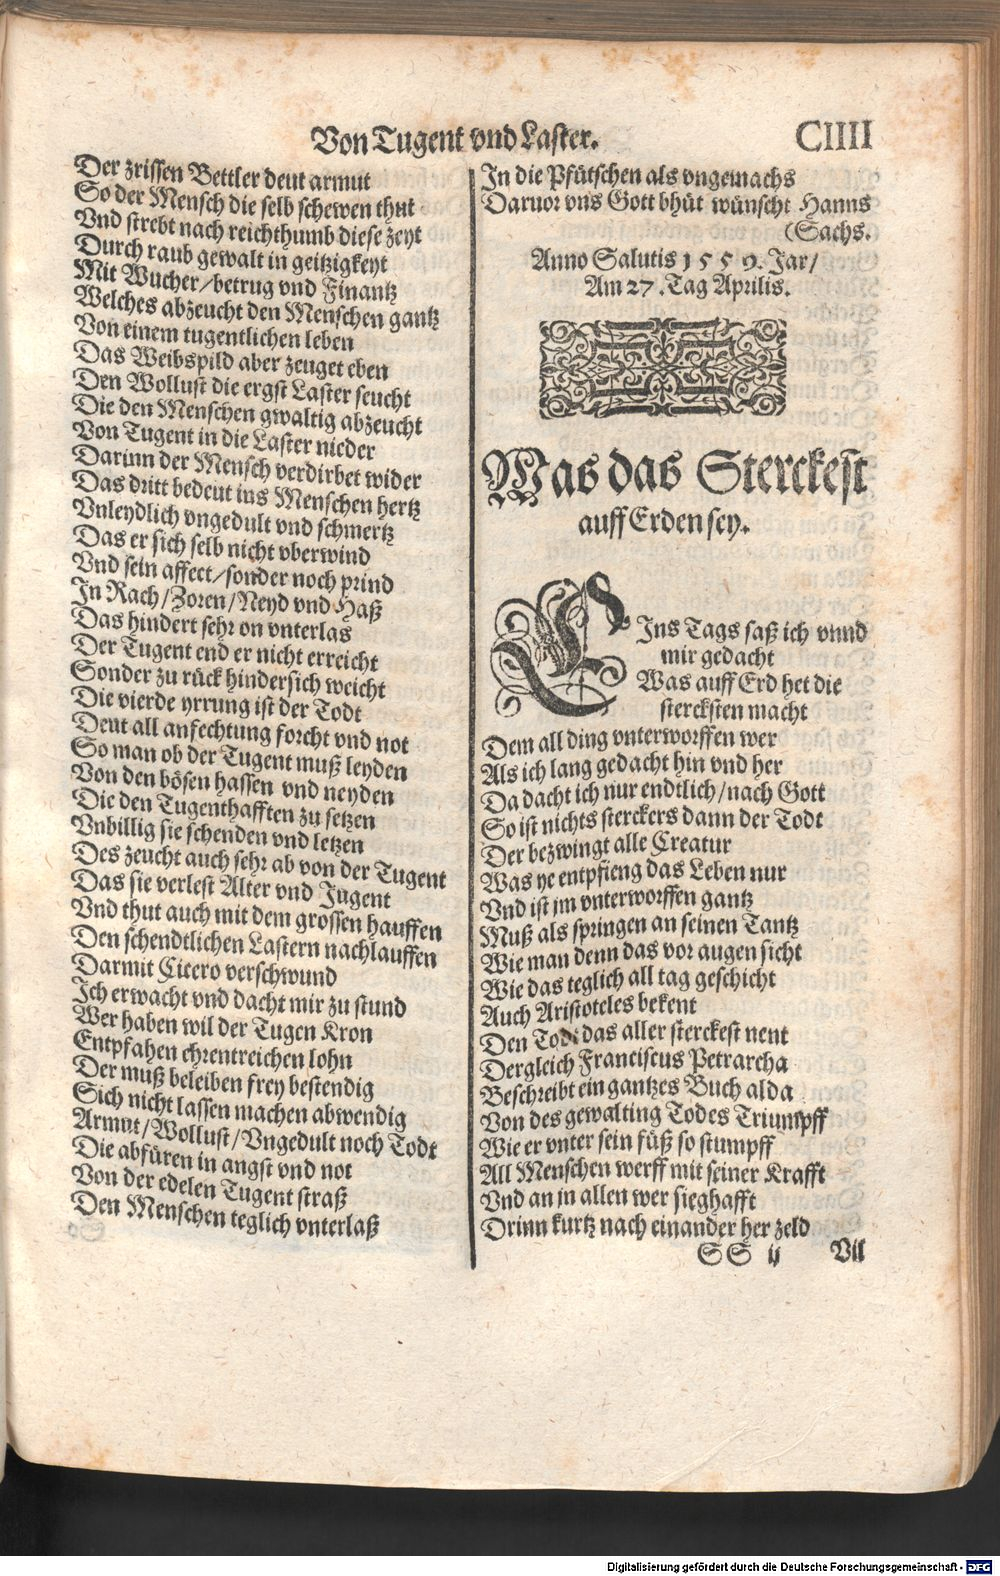 Von Tugent vnd Laster. CIIII
Der zrissen Bettler deut armut
So der Mensch die selb schewen thut
Vnd strebt nach reichthumb diese zeyt
Durch raub gewalt in geitzigkeyt
Mit Wucher/betrug vnd Finantz
Welches abzeucht den Menschen gantz
Von einem tugentlichen leben
Das Weibspild aber zeuget eben
Den Wollust die ergst Laster seucht
Die den Menschen gwaltig abzeucht
Von Tugent in die Laster nieder
Darinn der Mensch verdirbet wider
Das dritt bedeut ins Menschen hertz
Vnleydlich vngedult vnd schmertz
Das er sich selb nicht vberwind
Vnd sein affect/sonder noch prind
In Rach/Zoren/Neyd vnd Haß
Das hindert sehr on vnterlas
Der Tugent end er nicht erreicht
Sonder zu rück hindersich weicht
Die vierde yrrung ist der Todt
Deut all anfechtung forcht vnd not
So man ob der Tugent muß leyden
Von den bösen hassen vnd neyden
Die den Tugenthafften zu setzen
Vnbillig sie schenden vnd letzen
Des zeucht auch sehr ab von der Tugent
Das sie verlest Alter vnd Jugent
Vnd thut auch mit dem grossen hauffen
Den schendtlichen Lastern nachlauffen
Darmit Cicero verschwund
Ich erwacht vnd dacht mir zu stund
Wer haben wil der Tugen Kron
Entpfahen ehrentreichen lohn
Der muß beleiben frey bestendig
Sich nicht lassen machen abwendig
Armut/Wollust/Vngedult noch Todt
Die abfüren in angst vnd not
Von der edelen Tugent straß
Den Menschen teglich vnterlaß
In die Pfütschen als vngemachs
Daruor vns Gott bhüt wünscht Hanns
(Sachs.
Anno Salutis 1559. Jar/
Am 27. Tag Aprilis.
Was das Sterckest
auff Erden sey.
EIns Tags saß ich vnnd
mir gedacht
Was auff Erd het die
stercksten macht
Dem all ding vnterworffen wer
Als ich lang gedacht hin vnd her
Da dacht ich nur endtlich/nach Gott
So ist nichts sterckers dann der Todt
Der bezwingt alle Creatur
Was ye entpfieng das Leben nur
Vnd ist jm vnterworffen gantz
Muß als springen an seinen Tantz
Wie man denn das vor augen sicht
Wie das teglich all tag geschicht
Auch Aristoteles bekent
Den Todt das aller sterckest nent
Dergleich Franciscus Petrarcha
Beschreibt ein gantzes Buch alda
Von des gewalting Todes Triumpff
Wie er vnter sein füß so stumpff
All Menschen werff mit seiner Krafft
Vnd an in allen wer sieghafft
Drinn kurtz nach einander her zeld
SS ij Vil
Digitalisierung gefördert durch die Deutsche Forschungsgemeinschaft - DFG